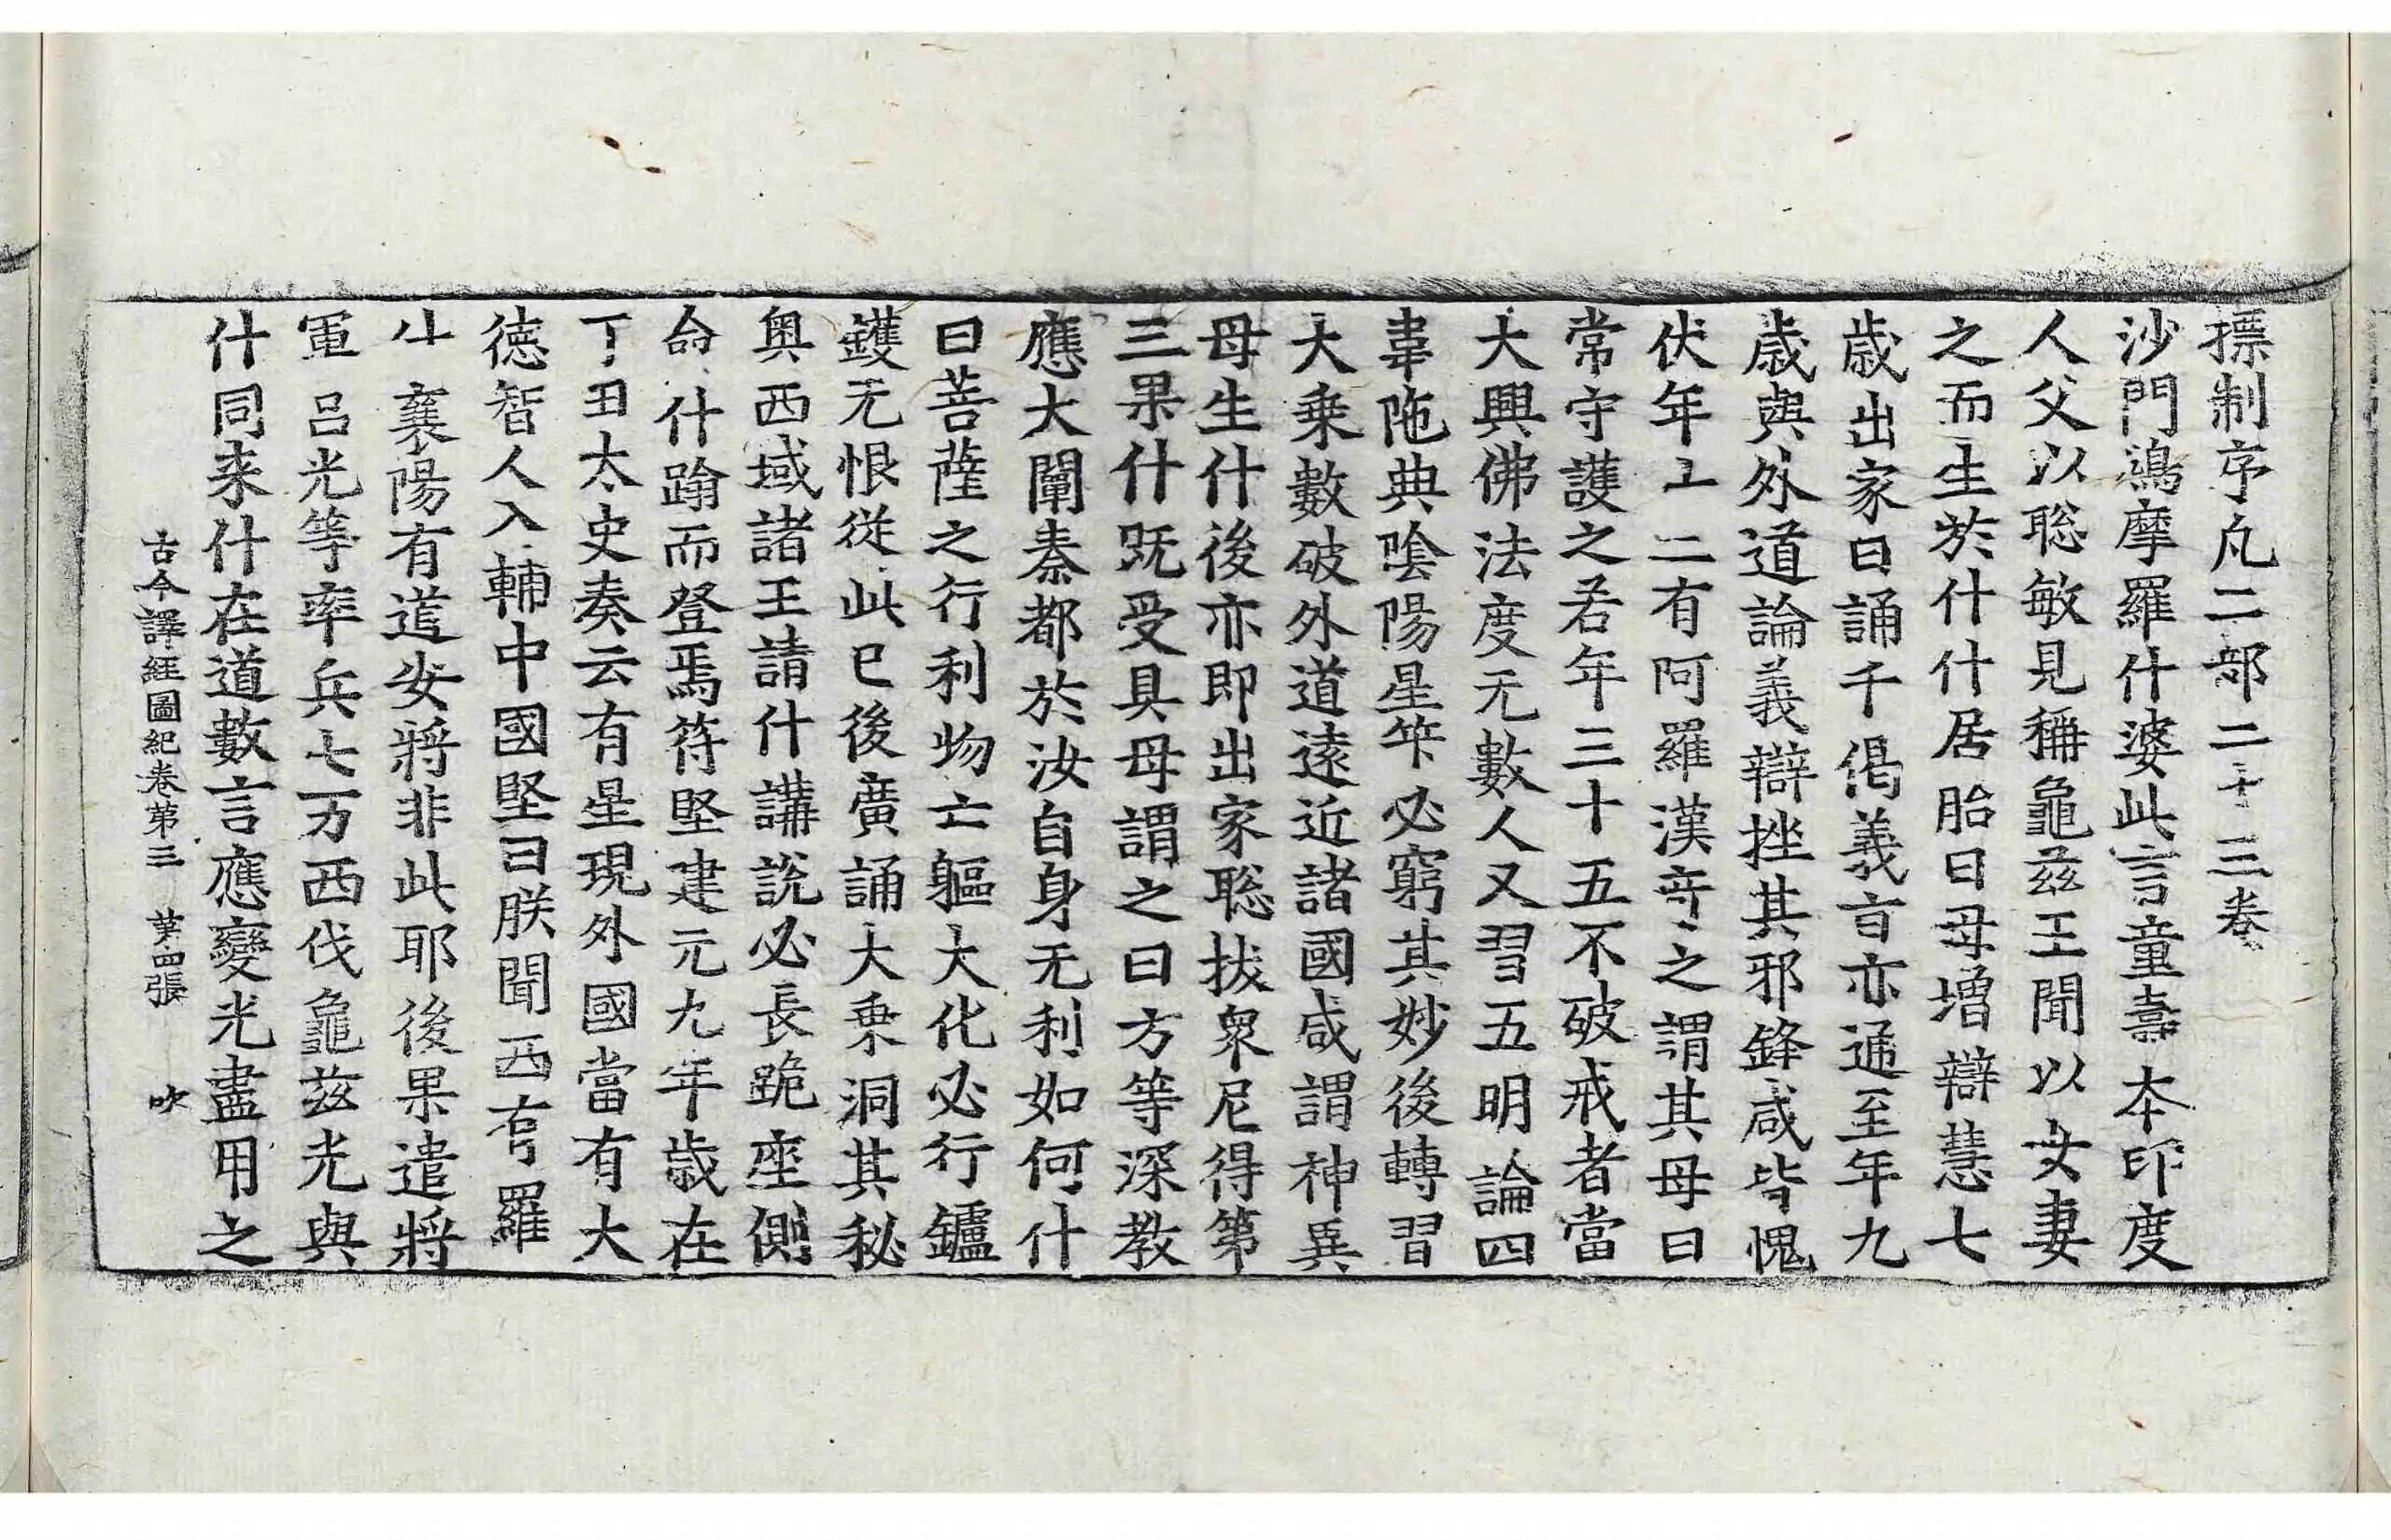 摽制序凡二部二十三卷
沙門鳩摩羅什婆此言童壽本印度
人父以聡敏見稱龜茲王聞以女妻
之而生於什什居胎日母增辯慧七
歲出家日誦千偈義旨亦通至年九
歲與外道論義辯挫其邪鋒咸皆愧
伏年十二有阿羅漢奇之謂其母曰
常守護之若年三十五不破戒者當
大興佛法度无數人又習五明論四
韋陁典陰陽星筭必窮其妙後轉習
大乗數破外道遠近諸國咸謂神異
母生什後亦即出家聡拔衆尼得第
三果什旣受具母謂之曰方等深教
應大闡秦都於汝自身无利如何什
曰菩薩之行利物亡軀大化必行鑪
鑊无恨從此已後廣誦大乗洞其秘
奥西域諸王請什講說必長跪座側
命什踰而登焉符堅建元九年歲在
丁丑太史奏云有星現外國當有大
徳智人入輔中國堅曰朕聞西有羅
什襄陽有道安將非此耶後果遣將
軍呂光等率兵七万西伐龜茲光與
什同来什在道數言應變光盡用之
古今譯經圖紀卷第三 第四張 吹